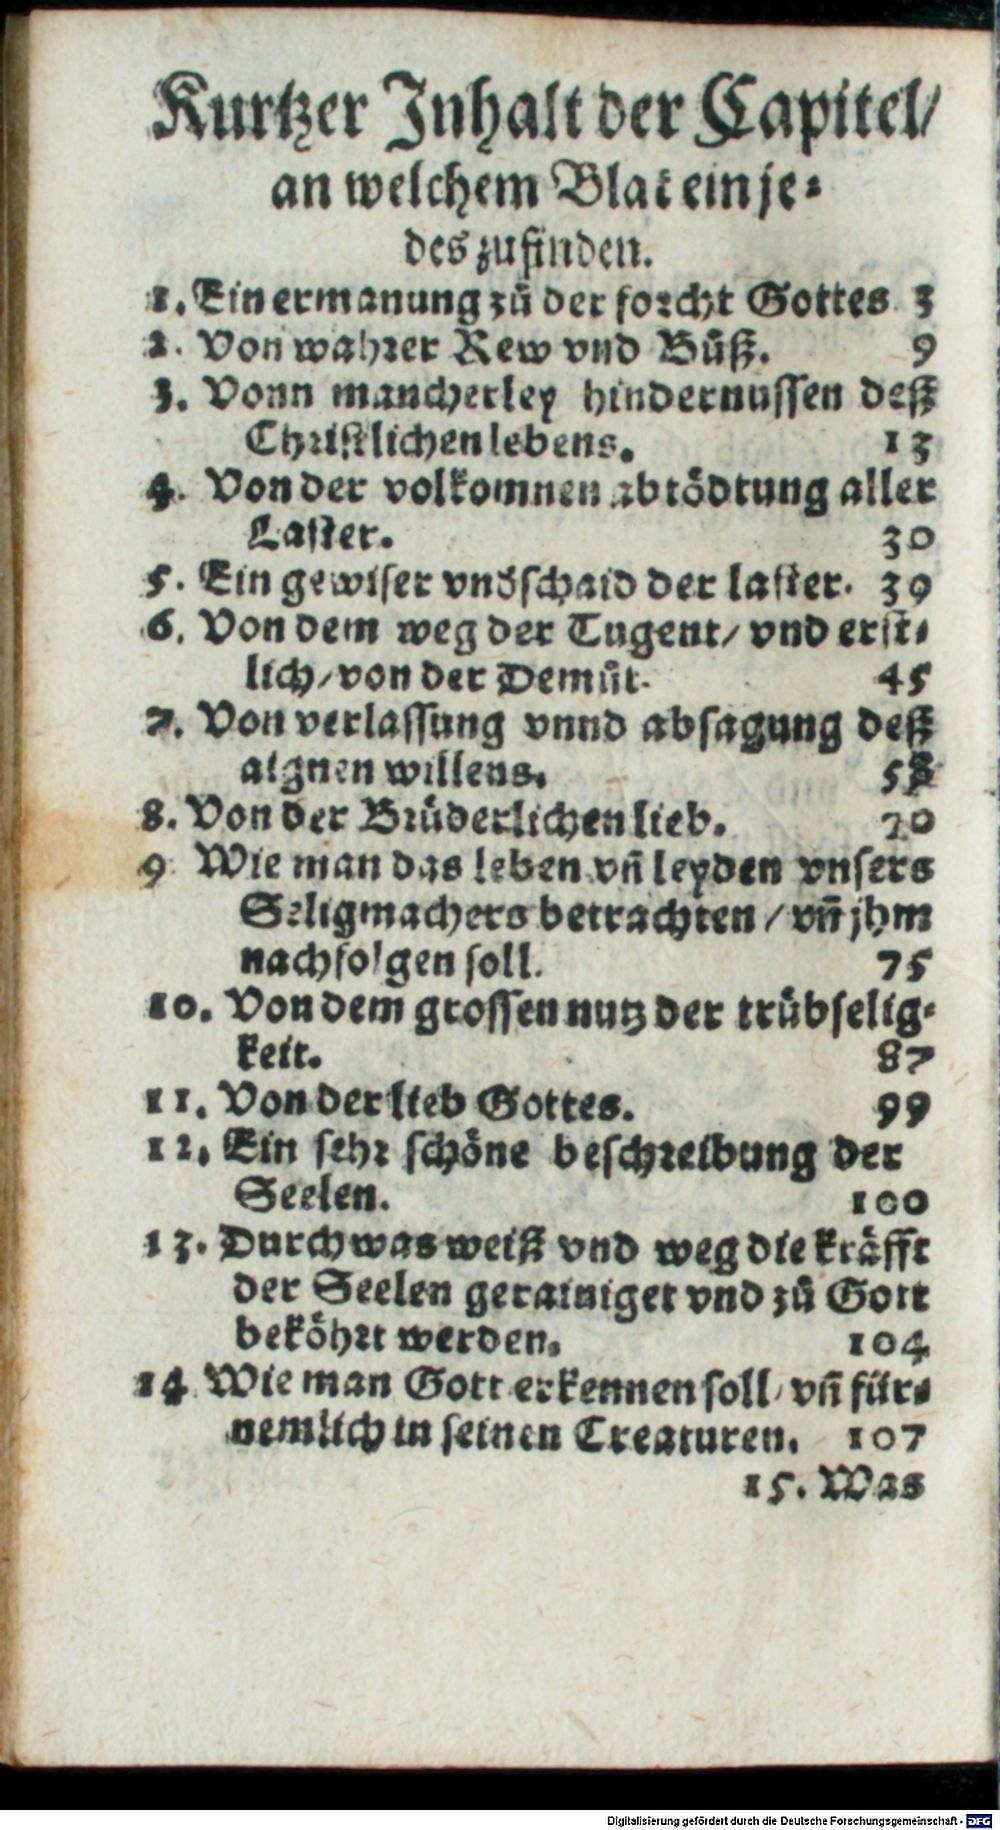 Kurtzer Inhalt der Capitel/
an welchem Blat ein je⸗
des zufinden.
1. Ein ermanung zů der forcht Gottes 3
2. Von wahrer Rew vnd Bůß. 9
3. Vonn mancherley hindernussen deß
Christlichen lebens. 13
4. Von der volkomnen abtödtung aller
Laster. 30
5. Ein gewiser vndschaid der laster. 39
6. Von dem weg der Tugent/ vnd erst⸗
lich/ von der Demůt. 45
7. Von verlassung vnnd absagung deß
aignen willens.
8. Von der Brüderlichen lieb. 70
9 Wie man das leben vñ leyden vnsers
Seligmachers betrachten / vñ jhm
nachfolgen soll. 75
10. Von dem grossen nutz der trübselig⸗
keit. 87
11. Von der lieb Gottes. 99
12. Ein sehr schöne beschreibung der
Seelen. 100
13. Durch was weiß vnd weg die kräfft
der Seelen gerainiget vnd zů Gott
beköhrt werden. 104
14 Wie man Gott erkennen soll/ vñ für⸗
nemlich in seinen Creaturen. 107
15. Was
Digitalisierung gefördert durch die Deutsche Forschungsgemeinschaft - DFG